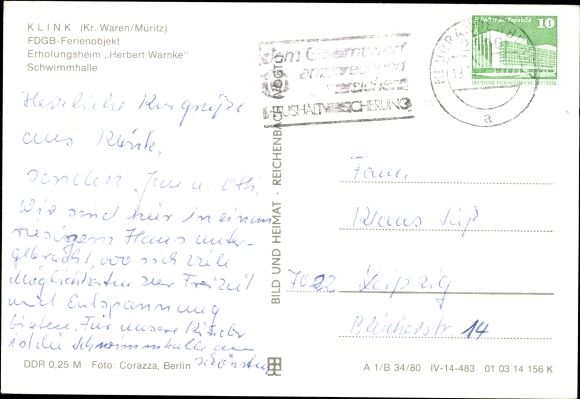 KLINK (Kr. Waren/Müritz)
FDGB-Ferienobjekt
Erholungsheim „Herbert Warnke"
Schwimmhalle
Herzliche Kurgrüße
aus Klink,
senden
Wir sind hier in einem
riesigen Haus unter-
gebracht, wo sich viele
Möglichkeiten zur Freizeit
und Entspannung
bieten. Für unsere Kinder
ist die Schwimmhalle am
schönsten
DDR 0,25 M Foto: Corazza, Berlin
BILD UND HEIMAT · REICHENBACH (VOGTL)
dem Gesamtwert
entsprechend
versichern
HAUSHALTVERSICHERUNG
a
Palast der Republik 10
DEUTSCHE DEMOKRATISCHE REPUBLIK
Fam.
Klaus Süß
7022 Leipzig
Blücherstr 14
A 1/B 34/80 IV-14-483 01 03 14 156 K